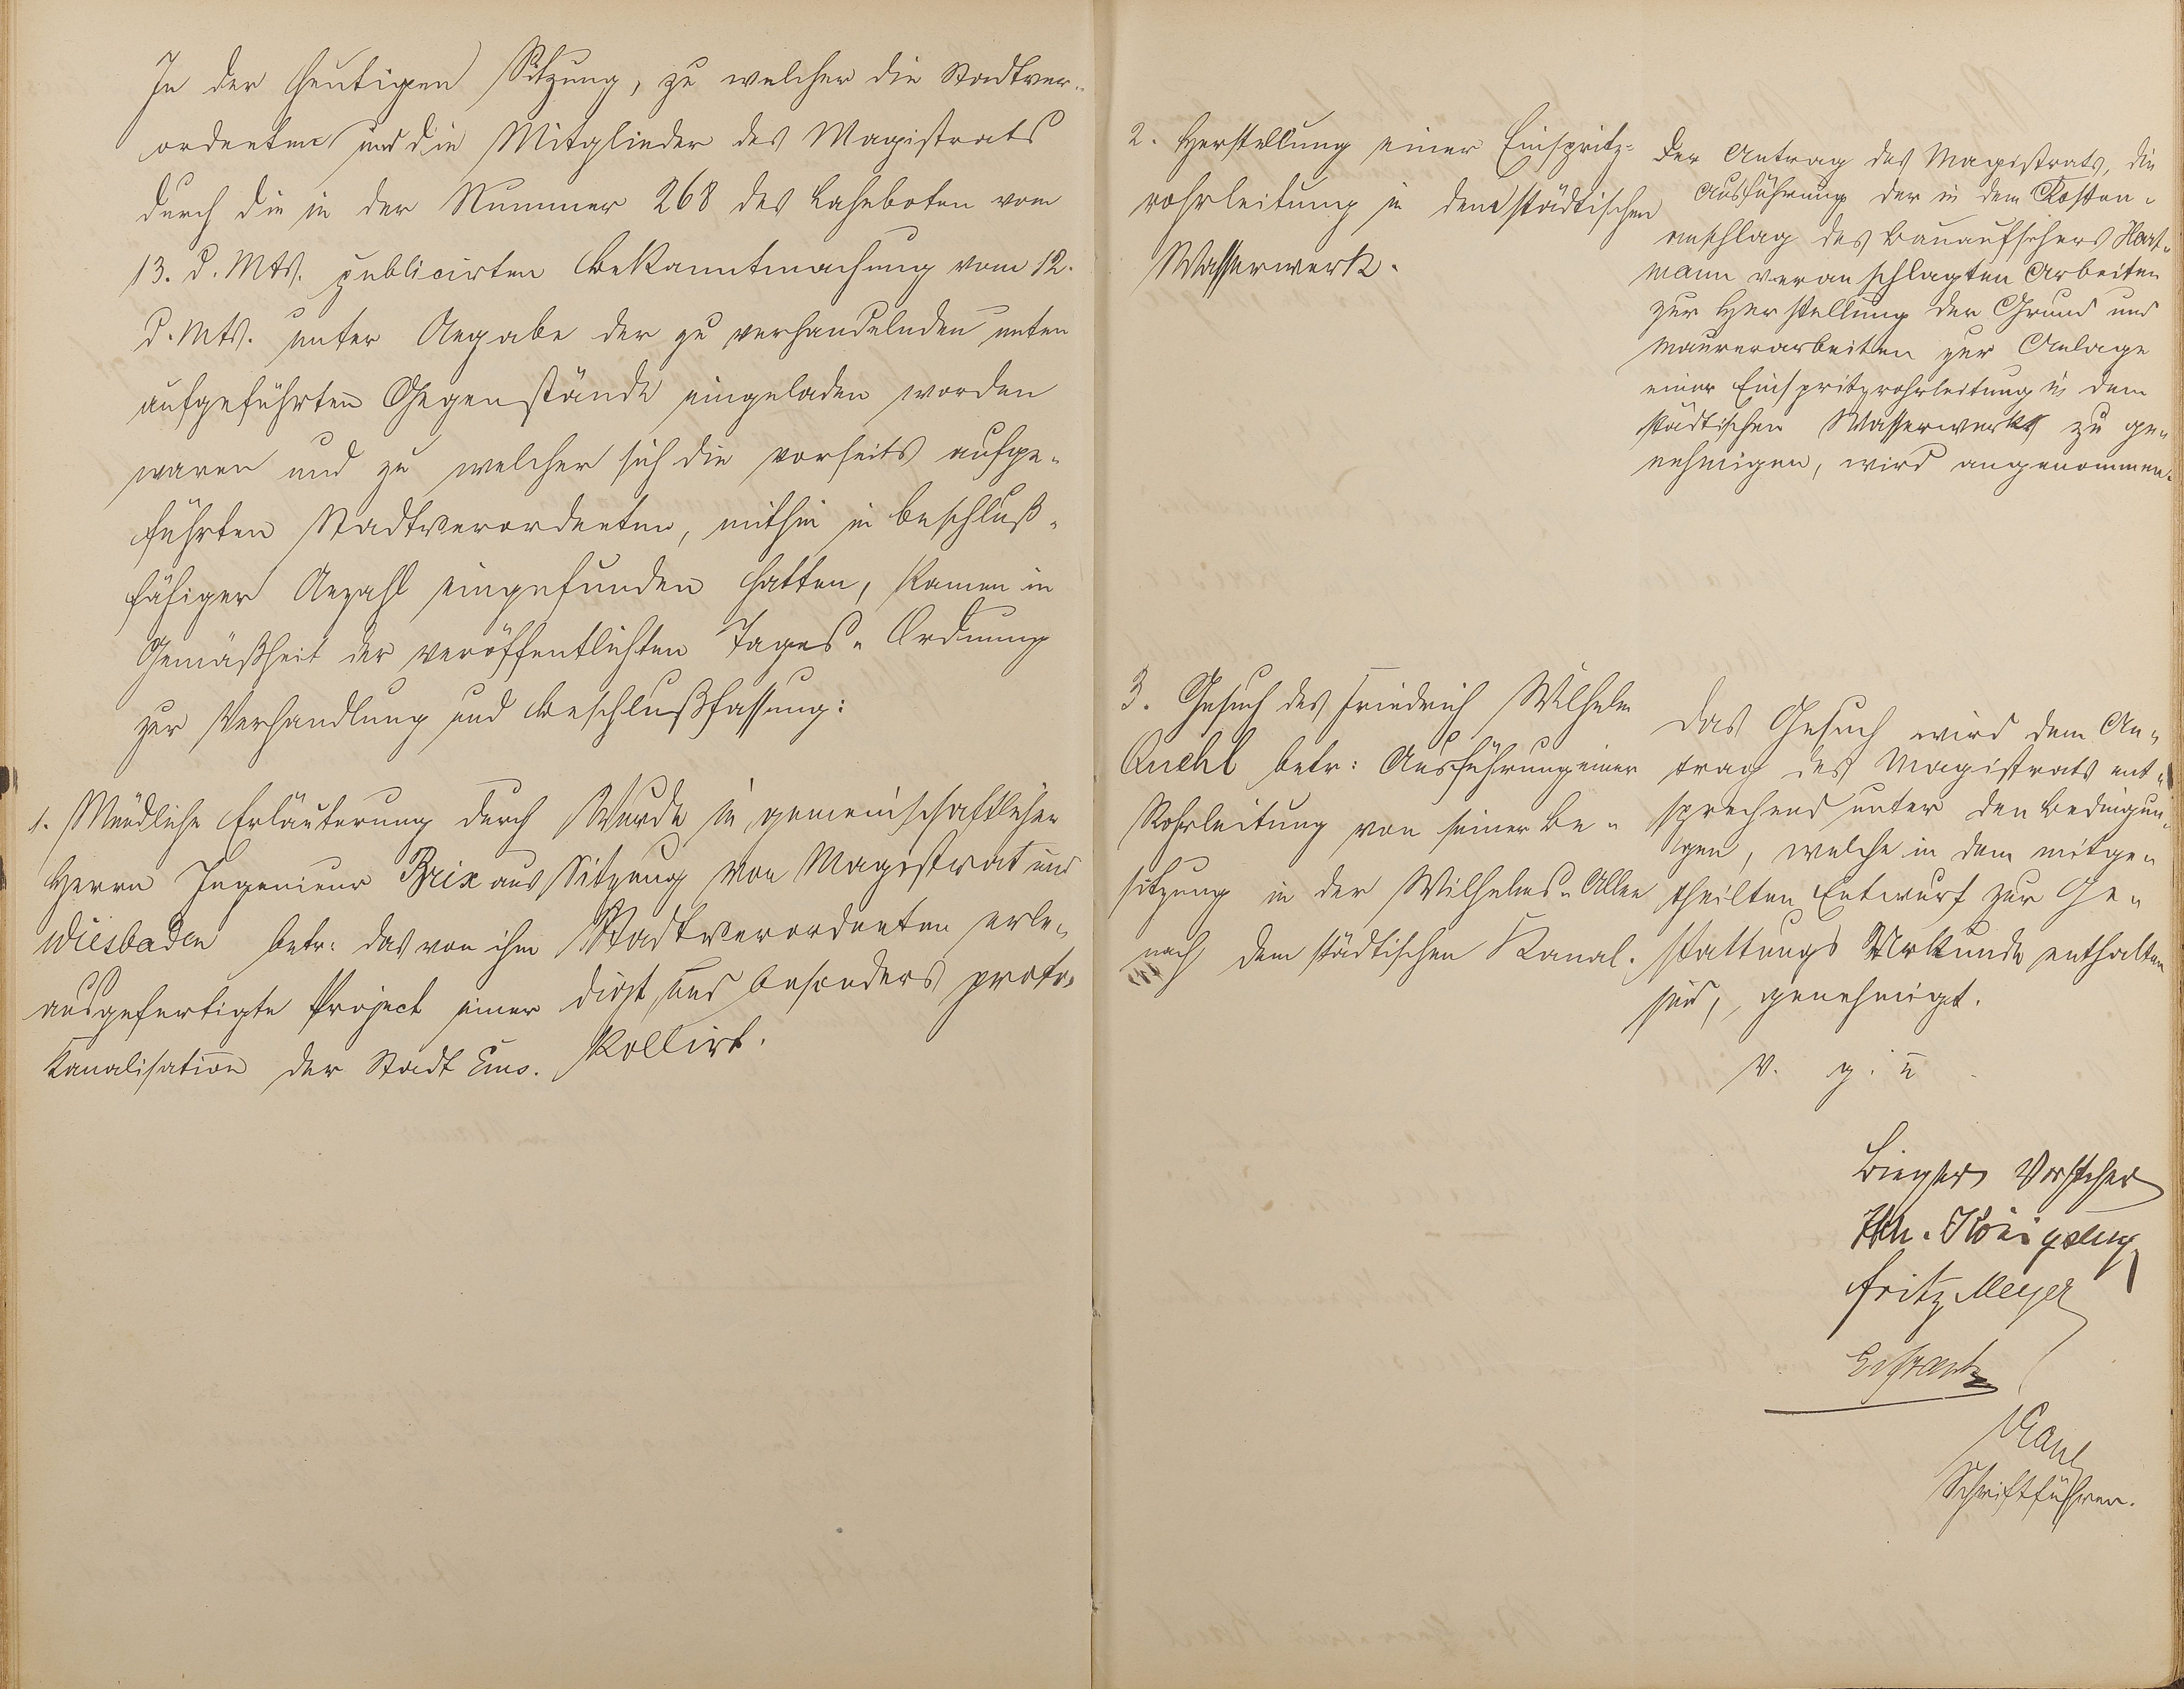 In der heutigen Sitzung, zu welcher die Stadtver-
ordneten und die Mitglieder des Magistrats
durch die in der Nummer 268 des Lahnboten vom
13. d. Mts. publicirten Bekanntmachung vom 12.
d. Mts. unter Angabe der zu verhandelnden unten
aufgeführten Gegenstände eingeladen worden
waren und zu welcher sich die vorseits aufge-
führten Stadtverordneten, mithin in beschluß-
fähiger Anzahl eingefunden hatten, kamen in
Gemäßheit der veröffentlichten Tages-Ordnung
zur Verhandlung und Beschlußfassung:
1. Mündliche Erläuterung durch
Herrn Ingenieur Brix aus
Wiesbaden betr. das von ihm
ausgefertigte Project einer
Kanalisation der Stadt Ems.
Wurde in gemeinschaftlicher
Sitzung von Magistrat und
Stadtverordneten erle-
digt und besonders proto-
kollirt.
2. Herstellung einer Einspritz-
rohrleitung in dem städtischen
Wasserwerk.
Der Antrag des Magistrats, die
Ausführung der in dem Kosten-
anschlag des Bauaufsehers Hart-
mann veranschlagten Arbeiten
zur Herstellung der Grund und
Maurerarbeiten zur Anlage
einer Einspritzrohrleitung in dem
städtischen Wasserwerk zu ge-
nehmigen, wird angenommen.
3. Gesuch des Friedrich Wilhelm
betr: Ausführung einer
Rohrleitung von seiner Be-
sitzung in der Wilhelms-Allee
nach dem städtischen Kanal.
Das Gesuch wird dem An-
trag des Magistrats ent-
sprechend unter den Bedingun-
gen, welche in dem mitge-
theilten Entwurf zur Ge-
stattungs Urkunde enthalten
sind, genehmigt.
v. g. u
Vorsteher
Fritz Meyer
Schriftführer.